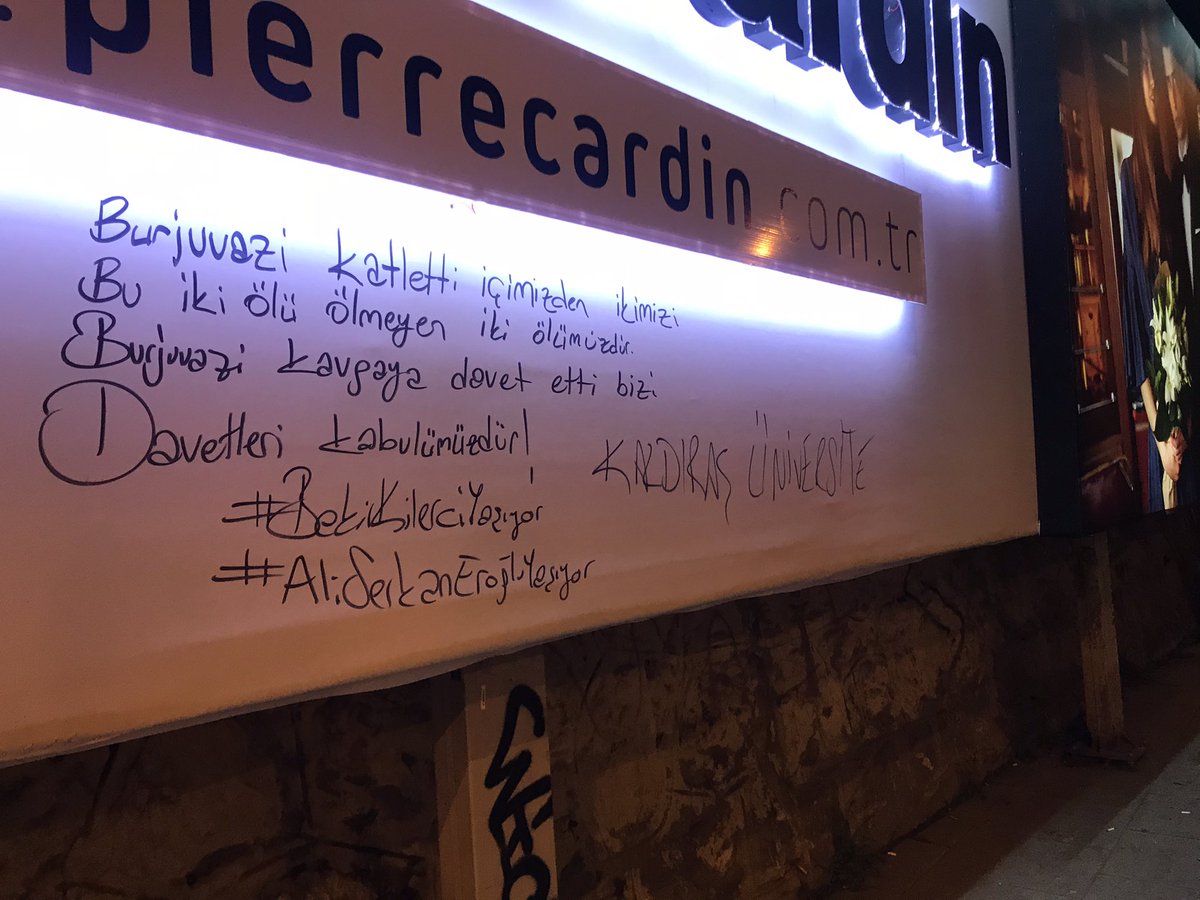 ardin
pierrecardin.com.tr
Burjuvazi katletti içimizden ikimizi
Bu iki ölü ölmeyen iki ölümüzdür.
Burjuvazi kavgaya davet etti bizi
Davetleri kabulümüzdür!
KALDIRAÇ ÜNİVERSİTE
#BekirKilerciYaşıyor
#AliSerkanEroğluYaşıyor